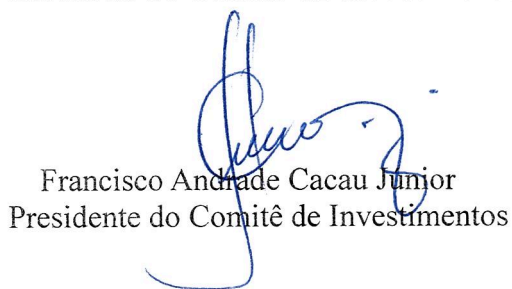 Francisco Andrade Cacau Júnior
Presidente do Comitê de Investimentos